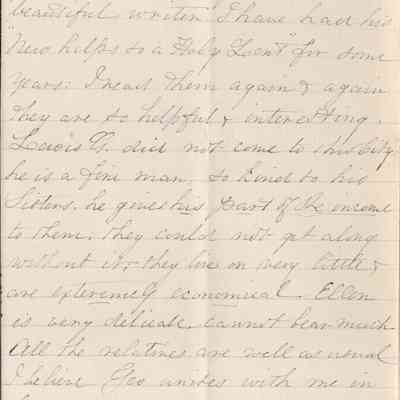 beautiful writer I have had his
"New helps to a Holy Lent" for some
years: I read them again & again
they are so helpful & interesting.
Lewis G. did not come to this City
he is a fine man, so kind to his
Sisters. he gives his part of the income
to them, they could not get along
without it, & they live on very little &
are extremely economical. Ellen
is very delicate, cannot bear much
All the relatives are well as usual
I believe Geo unites with me in